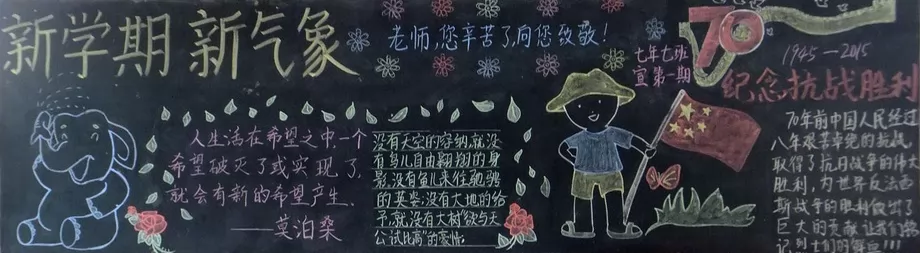 新学期 新气象
老师,您辛苦了,向您致敬!
七年七班
宣第一期
70
1945-2015
纪念抗战胜利
人生活在希望之中.一个
希望破灭了或实现了,
就会有新的希望产生.
——莫泊桑
没有天空的容纳,就没
有鸟儿自由翱翔的身
影;没有鱼儿来往驰骋
的英姿;没有大地的给
予,就没有大树"欲与天
公试比高"的豪情.
70年前中国人民经过
八年艰苦卓绝的抗战,
取得了抗日战争的伟大
胜利,为世界反法西
斯战争的胜利做出了
巨大的贡献.让我们铭
记烈士们的